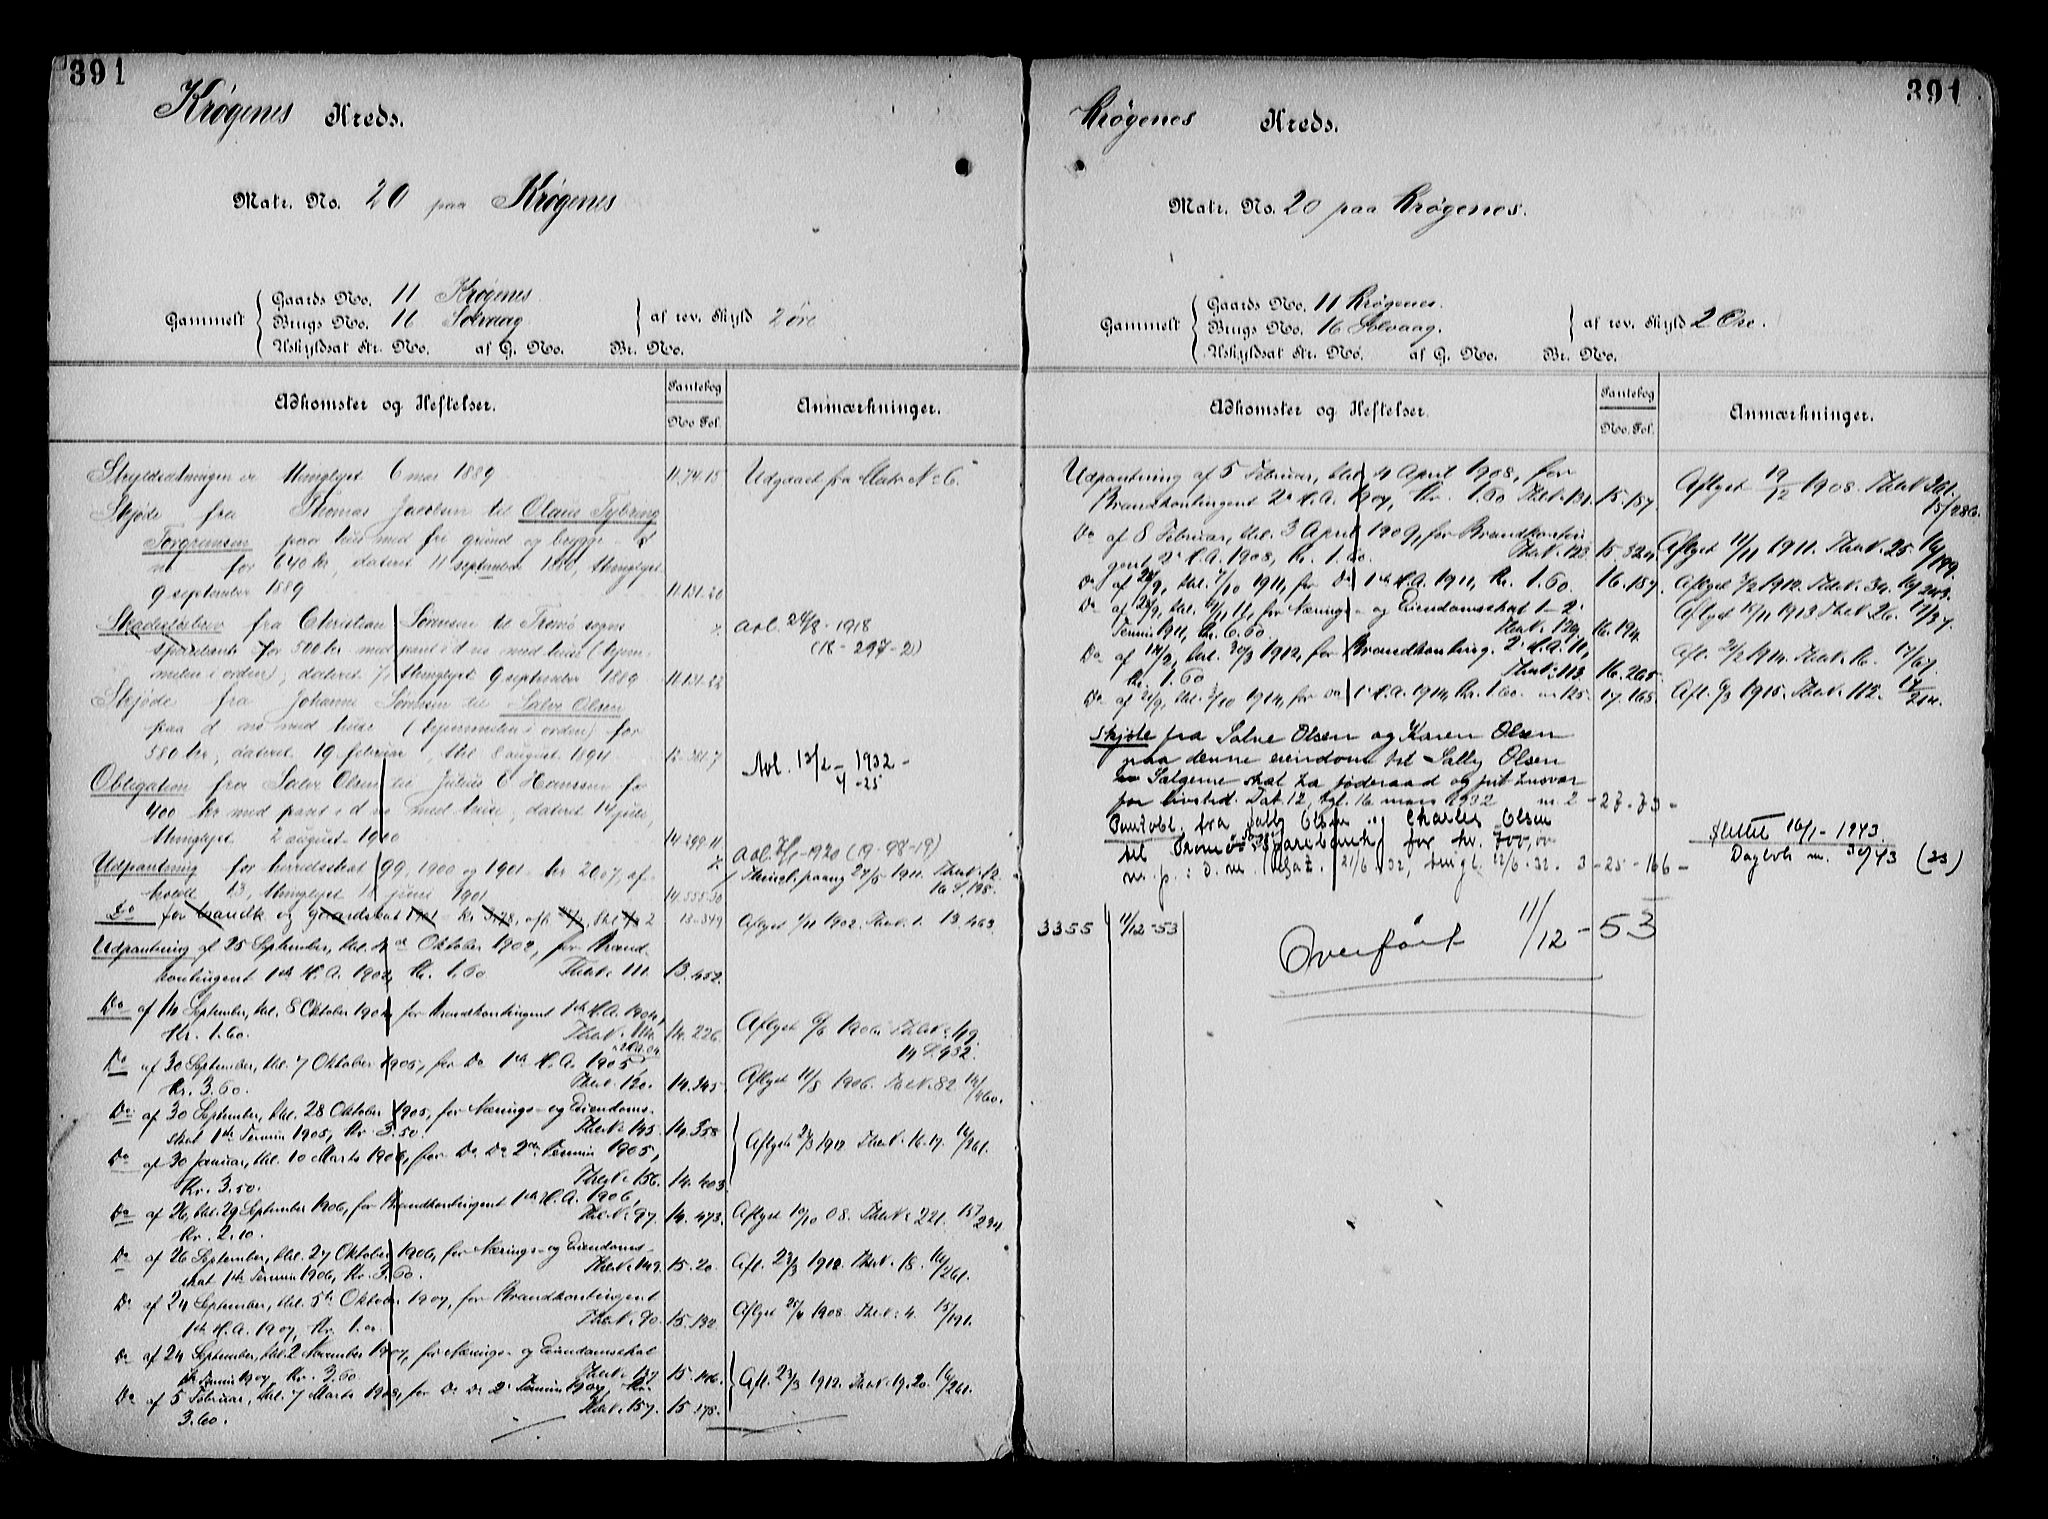 391
Krøgenes Kreds.
Matr. No. 20 paa Krøgenes
Gammelt
Gaards No. 11 Krøgenes
Brugs No. 16 Solvaag
Uskyldsat Str. No. af G. No. Br. No.
af rev. Skyld 2 øre
Adkomster og Heftelser.
Pantebog
No. Fol.
Anmærkninger.
Skyldsætningen er thinglyst 6 mai 1889 11.74.15 Udgaaet fra Matr No 6.
Skjøde fra Thomas Jacobsen til Olaus Tybring
paa huus med fri grund og brygge
for 640 kr, dateret 11 september 1880, thinglyst
9 september 1889 11.131.20
Skadesløsbrev fra Christian Sørensen til Tromø sogns
sparebank for 500 kr med pant i d no med huse (hjem-
melen i orden), dateret thinglyst 9 september 1889 11.131.22
Avl. 24/8 - 1918
(18 - 297 - 2)
Skjøde fra Johannes Sørensen til Salve Olsen
paa d no med huse (hjemmelen i orden) for
580 kr, dateret 19 februar, thl 8 august 1894 12.381.7
Obligation fra Salve Olsen til Julius C Hanssen for
400 kr med pant i d no med huse, dateret 14 juli,
thinglyst 2 august 1900 14.299.11
Avl. 13/2 - 1932 -
4 - 25
Udpantning for herredsskat 99, 1900 og 1901 kr 20.07, af-
holdt 13, thinglyst 18 juni 1901 14.555.30
Avl. 1920 (19-98-19)
Do for brandk og 13-349 Aflyst 1/11 1902. Thev. 1. 13.463
Udpantning af 25 September, thl. 4de Oktober 1902, for Brand-
kontingent 1ste H.A. 1902, Kr. 1.60 Thev. 111. 13.452.
Do af 14 September, thl. 8 Oktober 1904 for Brandkontingent 1ste H.A. 1904,
Kr. 1.60. 14.226.
Aflyst 1906 Thev. 49.
14 S. 432.
Do af 30 September, thl. 7 Oktober 1905, for Do 1ste H.A. 1905,
Kr. 3.60. Thev. 120. 14.345
Aflyst 11/8 1906. Thev. 82 14/460.
Do af 30 September, thl. 28 Oktober 1905, for Nærings- og Eiendoms-
skat 1ste Termin 1905, Kr 3.50. Thev. 145. 14.358
Do af 30 Januar, thl. 10 Marts 1906, for Do Do 2den Termin 1905,
Kr. 3.50. Thev. 156. 14.403
Aflyst 23/3 1912 Thev. 16.17. 16/261.
Do af 26, thl. 29 September 1906, for Brandkontingent 1ste H.A. 1906,
Kr. 2.10. Thev. 97. 14.473.
Aflyst 10/10 08. Thev. 221. 15/234
Do af 26 September, thl. 27 Oktober 1906, for Nærings- og Eiendoms-
skat 1ste Termin 1906, Kr. 3.60. Thev. 149. 15.20.
Afl. 23/3 1912. Thev. 18. 16/261.
Do af 24 September, thl. 5te Oktober 1907, for Brandkontingent
1ste H.A. 1907, Kr. Thev. 90. 15.130
Aflyst 25/4 1908. Thev. 4. 15/191.
Do af 24 September, thl. 2 November 1907, for Nærings- og Eiendomsskat
1ste Termin 1907, Kr. 3.60 Thev. 137 15.146.
Do af 5 Februar, thl. 7 Marts 1908, for Do Do 2 Termin 1907, Kr.
3.60. Thev. 157. 15.178.
Afl. 23/3 1912. Thev. 19.20. 16/261.
391
Krøgenes Kreds.
Matr. No. 20 paa Krøgenes.
Gammelt
Gaards No. 11 Krøgenes.
Brugs No. 16 Solvaag.
Uskyldsat Str. No. af G. No. Br. No.
af rev. Skyld 2 Øre.
Adkomster og Heftelser.
Pantebog
No. Fol.
Anmærkninger.
Udpantning af 5 Februar, thl. 4 April 1908, for
Brandkontingent 2. H.A. 1907, Kr. 1.60 Thev. 131. 15.187.
Aflyst 19/12 1908. Thev. 321.
15/286.
Do af 8 Februar, thl. 3 April 1909, for Brandkontin-
gent 2. H.A. 1908, Kr. 1.60. Thev. 123. 15.324.
Aflyst 11/11 1911. Thev. 25. 16/199.
Do af 27/9, thl. 7/10 1911, for Do 1ste H.A. 1911, Kr. 1.60. 16.187.
Aflyst 3/2 1912. Thev. 34. 16/243.
Do af 28/9, thl. 11, for Nærings- og Eiendomsskat 1-2.
Termin 1911, Kr. 6.60. Thev. 129. 16.194.
Aflyst 15/11 1913. Thev. 26. 17/37.
Do af 14/2, thl. 30/3 1912, for Brandkonting. 2. H.A. 11,
Kr. 1.60 Thev. 113. 16.265.
Afl. 21/2 1914. Thev. 16. 17/67
Do af 21/9, thl. 3/10 1914, for Do 1. H.A. 1914, Kr. 1.60. 125. 17.165.
Afl. 6/3 1915. Thev. 112. 17/214.
Skjøte fra Salve Olsen og Karen Olsen
paa denne eiendom til Sally Olsen
Salgerne skal ha føderaad og frit husvær
for livstid. Dat. 12, tgl. 16 mars 1932 nr. 2 - 27-73 -
Pantobl. fra Sally Olsen og Charles Olsen
til Tromø Sparebank for kr. 700,00
m. p. i d. nr. 21/6 32, tingl. 32. 3 - 25 - 166 -
Slettet 16/1-1943.
Dagbok nr. 30/43 (23)
3355 11/12-53
Overført 11/12 - 53